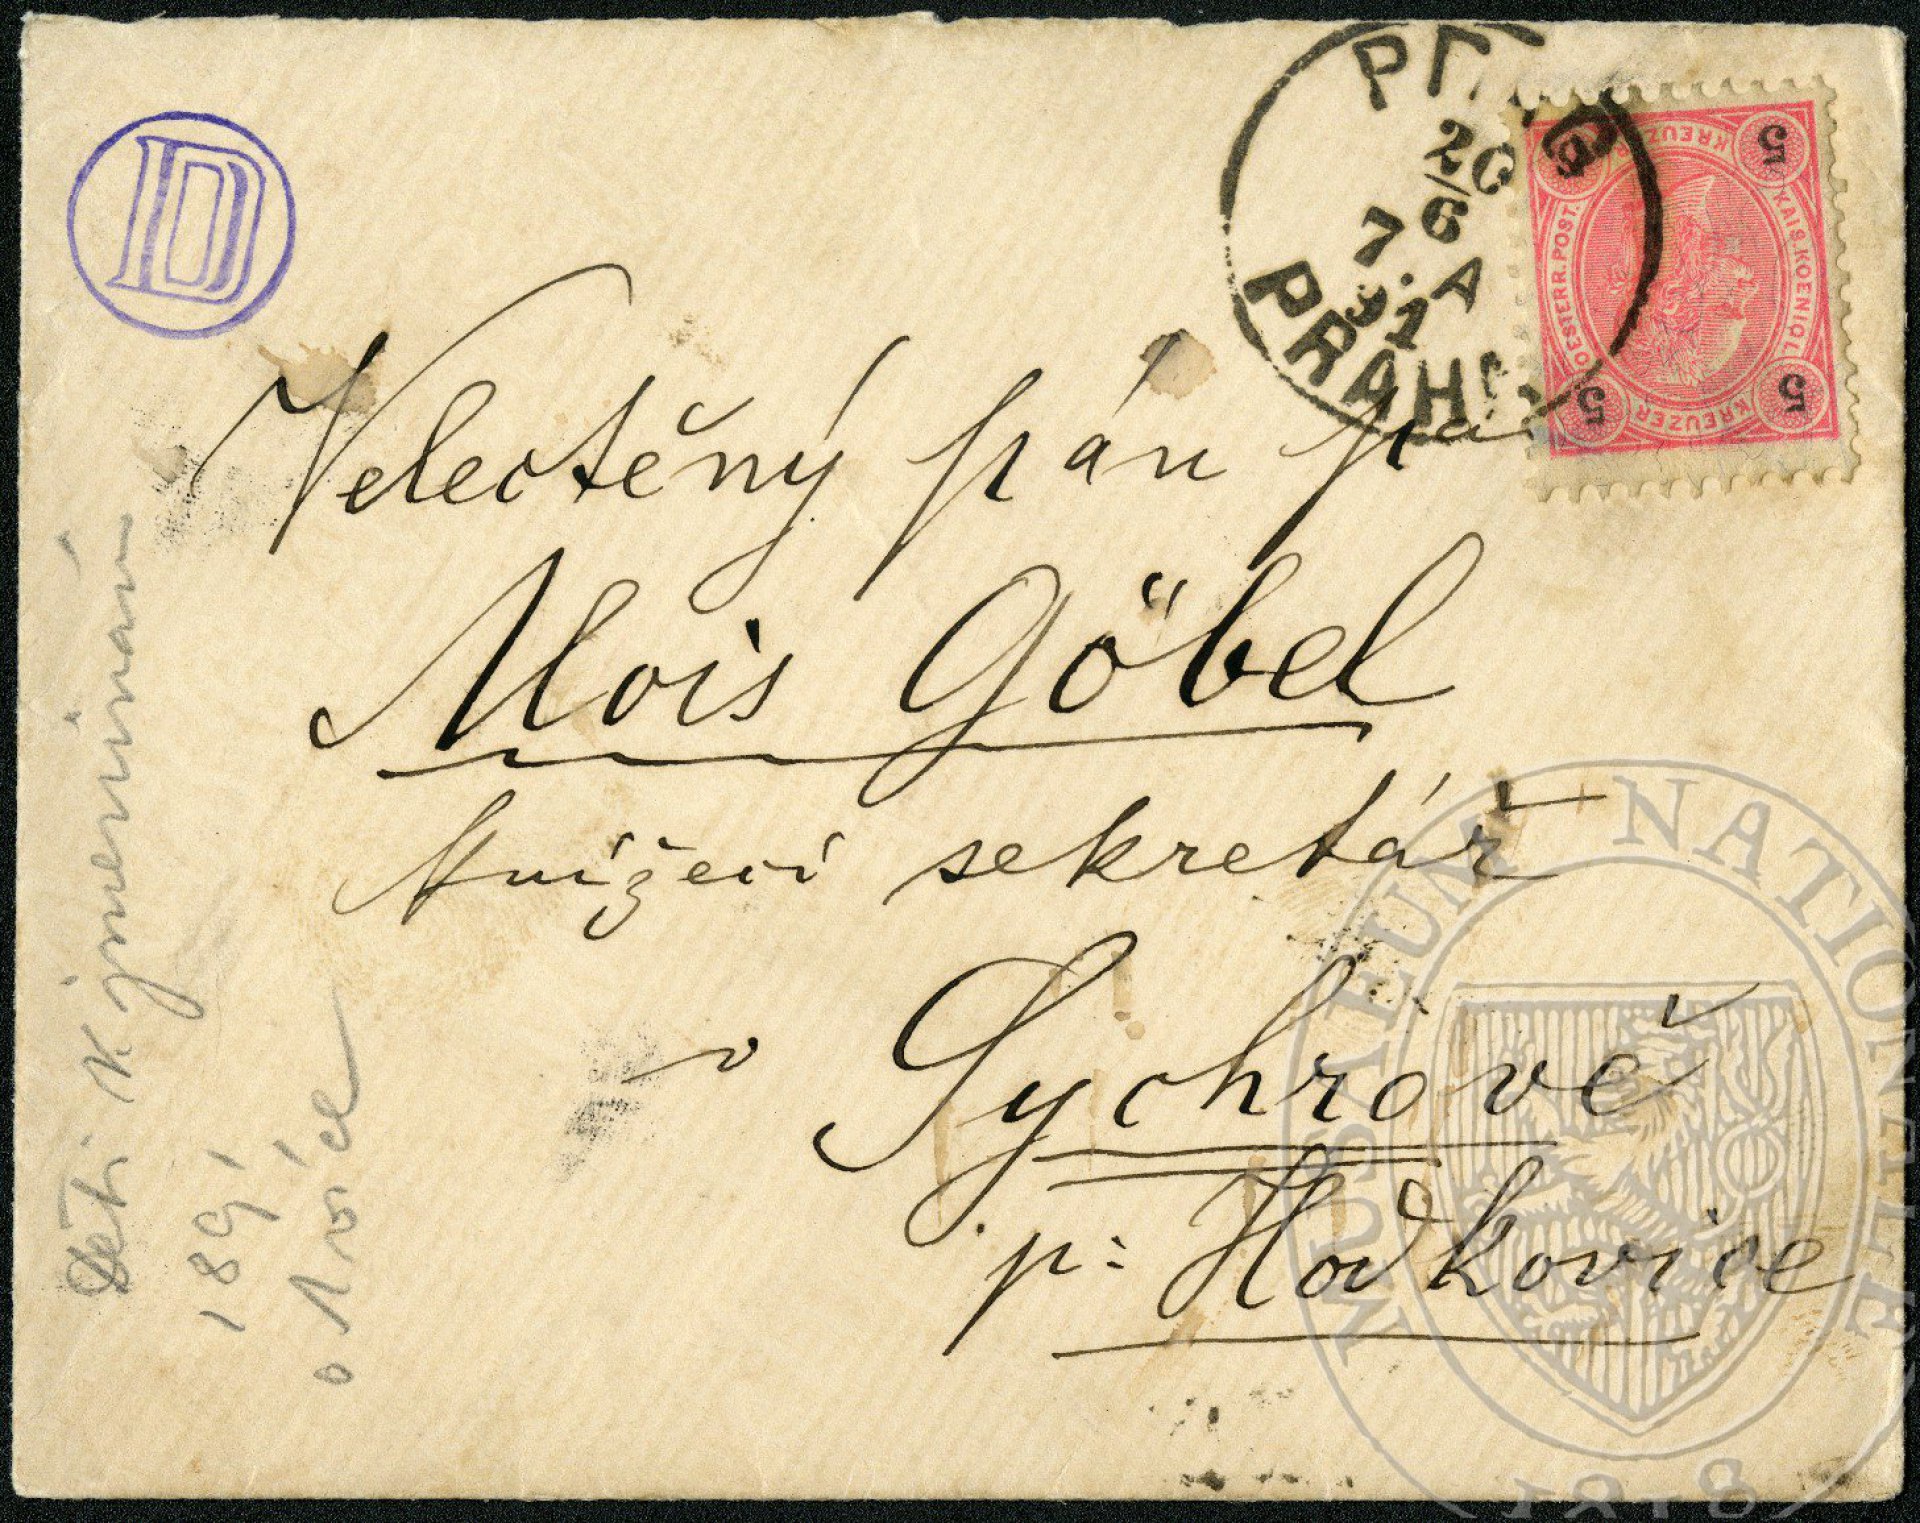 D
PRAG
20/6
7. A
91
PRAHA
5
5
5
5
KAIS. KOENIGL.
OESTERR. POST.
KREUZER
KREUZER
Velectěný pán pan
Alois Göbel
knížecí sekretář
v Sychrově
p: Hodkovice
Děti k jmeninám
1891
MUSAEUM NATIONALE
1818